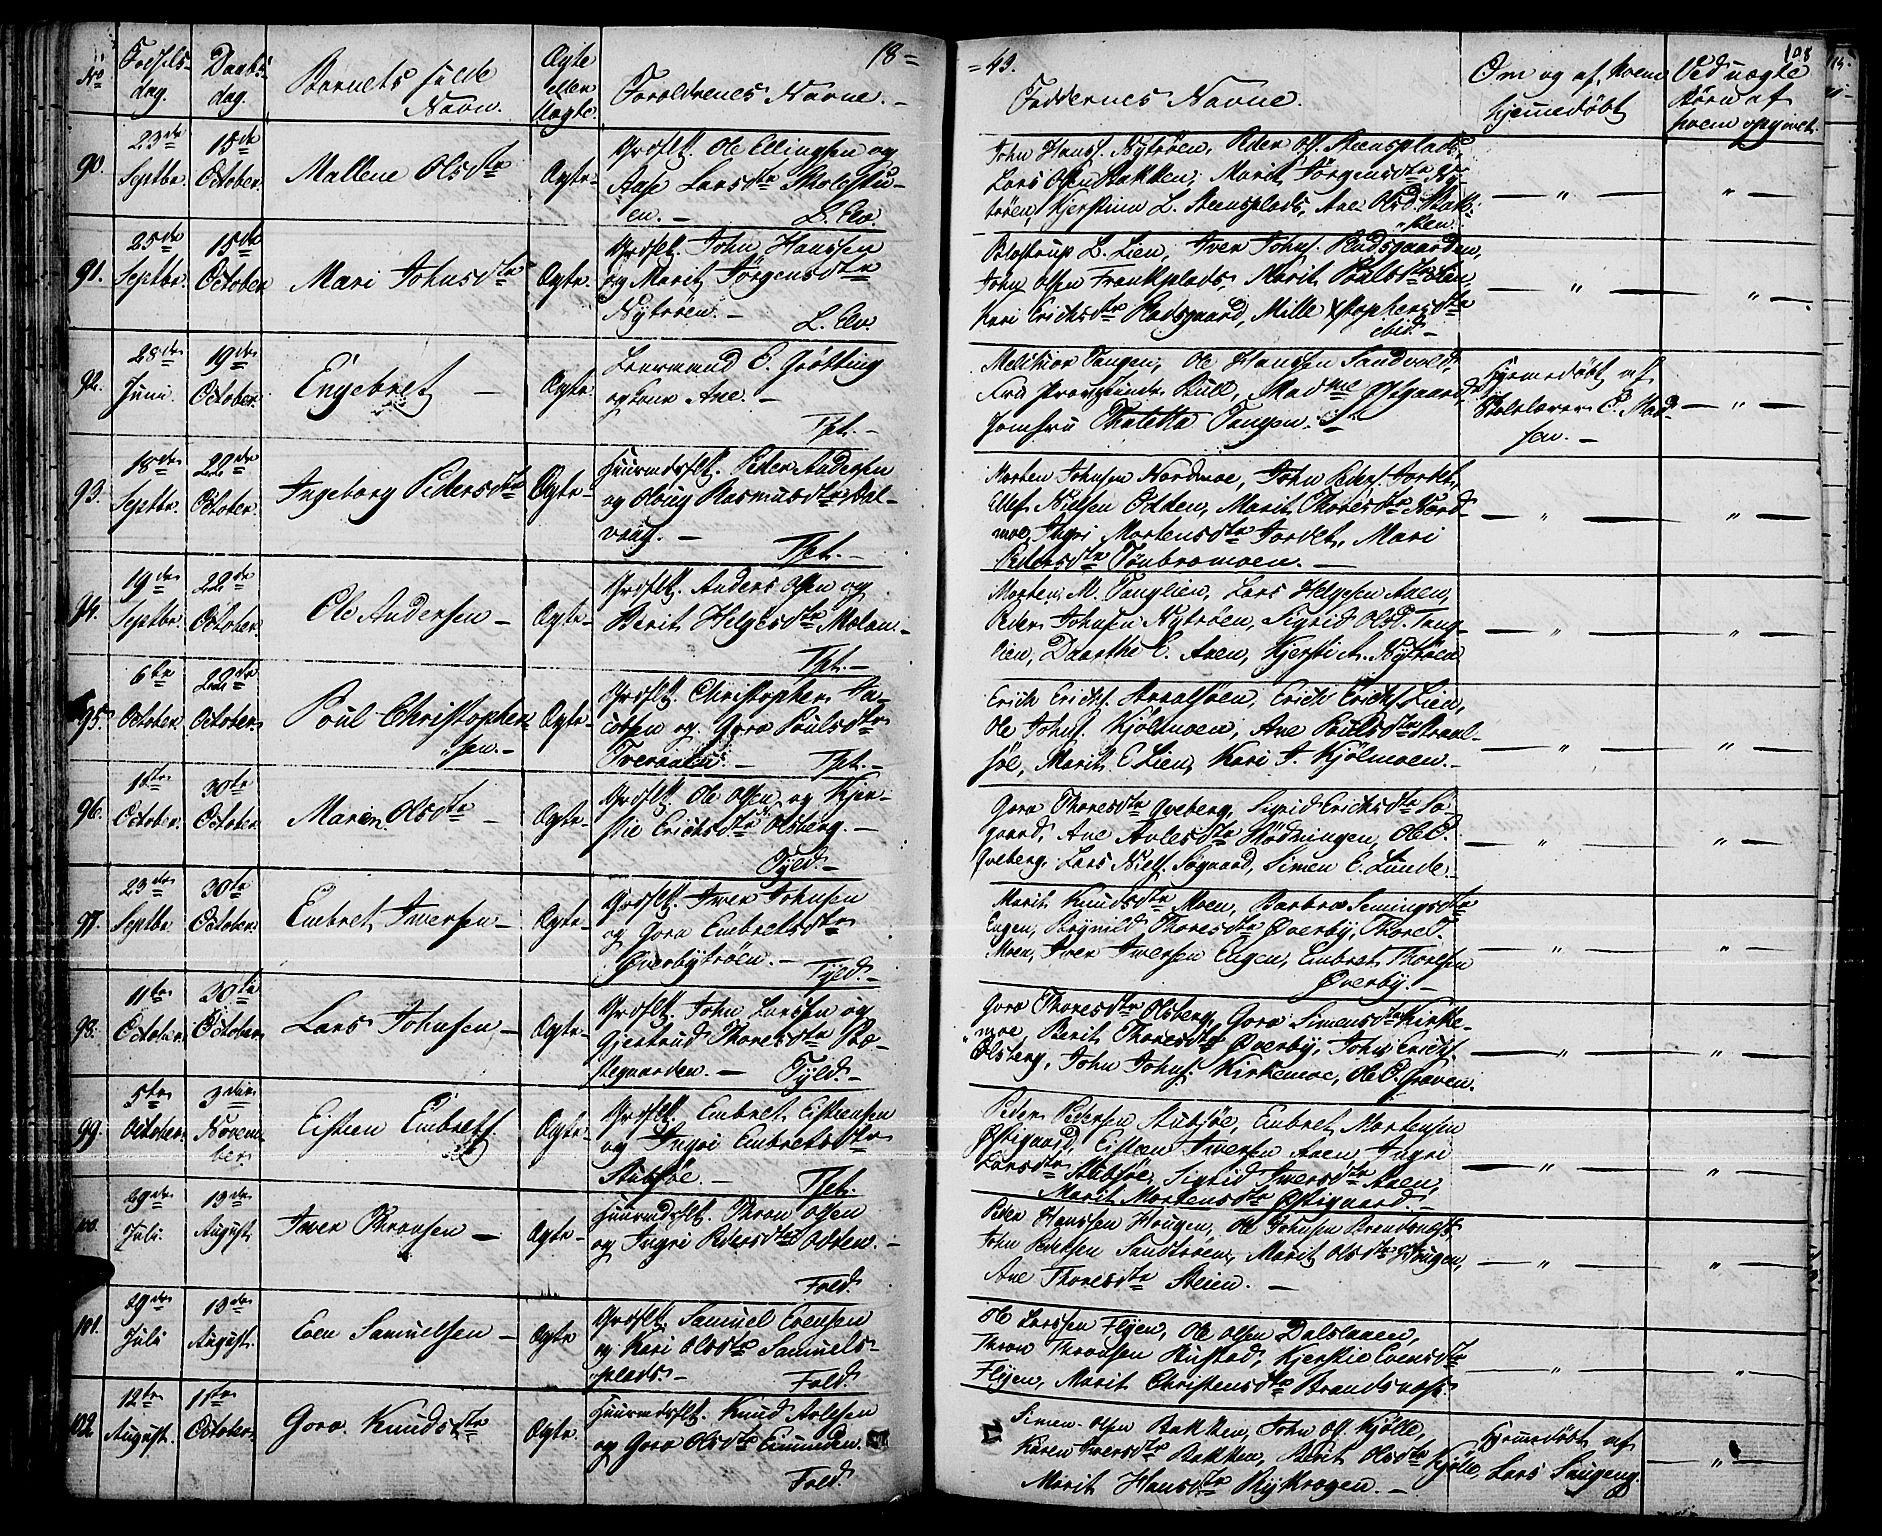 18=
=43.
108
No
Fødsels-
dag.
Daabs-
dag.
Barnets fulde
Navn.
Ægte
eller
Uægte.
Forældrenes Navne. -
Faddernes Navne.
Om og af hvem
hjemmedøbt
Ved uægte
Børn af
hvem opgivet.
90.
23de
Septbr.
15de
October.
Mallene Olsdtr
Ægte-
Grdflk. Ole Ellingsen og
Aase Larsdtr Skolestu-
en. - L. Elv.
John Hansf. Nytrøen, Peder Olf. Steensplads,
Lars Olsen Bakken, Marit Jørgensdtr Ny-
trøen, Kjerstina L. Steensplads, Ane Olsd. Bak-
ken.
91.
25de
Septbr.
15de
October
Mari Johnsdtr
Ægte-
Grdflk. John Hansen
og Marit Jørgensdtr
Nytrøen. - L. Elv.
L. Lien, Iver Johnf. Rødsgaarden,
John Olsen Trønkplads, Marit Poulsdtr Lien,
Kari Erichsdtr Rødsgaard, Mille Kstophersdtr
ibid. -
92.
28de
Juni.
19de
October.
Engebret -
Ægte-
Leermand E. Grøtting
og Kone Ane. -
Tht. -
Melchior Tangen, Ole Hansen Sandvold,
Fru Bull, Madme Østgaard,
Jomfru Thaletta Tangen.
Hjemedøbt af
Skolelærer P. Mad-
sen. -
93.
18de
Septbr.
22de
October.
Ingeborg Pedersdtr
Ægte-
Huusmdsflk. Peder Andersen
og Oloug Rasmusdtr Dal-
vang. - Tht. -
Morten Johnsen Nordmoe, John Pederf. Torvet,
Ulef Nielsen Odden, Marit Thoresdtr Nord-
moe, Ingri Mortensdtr Torvet, Mari
Pedersdtr Tønbromoen. -
94.
19de
Septbr.
22de
October.
Ole Andersen -
Ægte-
Grdflk. Anders Olsen og
Berit Helgesdtr Moløn-
Tht. -
Morten M. Tanglien, Lars Helgesen Aaen,
Peder Johnsen Nytrøen, Sigrid Olsd. Tang-
lien, Daarthe E. Aaen, Kjersti A. Nytrøen
95.
6te
October
22de
October.
Poul Christopher-
sen. -
Ægte-
Grdflk. Christopher Ja-
cobsen og Gora Poulsdtr
- Tht. -
Erich Erichf. Straalsøen, Erich Erichf. Lien,
Ole Johnf. Kjølmoen, Ane Poulsdtr Straal-
søe, Marit E Lien, Kari J. Kjølmoen. -
96.
10te
October.
30te
October.
Maren Olsdtr -
Ægte-
Grdflk. Ole Olsen og Kjer-
stie Erichsdtr Olsberg. -
Tyld. -
Gora Thoresdtr Qveberg, Sigrid Erichsdtr Sø-
gaard, Ane Avlesdtr Rødningen, Ole O.
Qveberg. Lars Nielf. Søgaard, Simen E. Lunde. -
97.
23de
Septbr
30te
October.
Embret Iversen -
Ægte-
Grdflk. Iver Johnsen
og Gora Embretsdtr
Øverbytrøen. - Tyld. -
Marit Knudsdtr Moen, Barbra Semingsdtr
Eugen, Røgnild Thoresdtr Øverby, Thore T.
Moen, Iver Iversen Eugen, Embret Thoresen
Øverby. -
98.
11te
October
30te
October.
Lars Johnsen -
Ægte-
Grdflk. John Larsen og
Gjertrud Thoresdtr Præ-
stegaarden. - Tyld. -
Gora Thoresdtr Olsberg, Gora Simensdtr Kirke-
moe, Berit Thoresdtr Øverby, John Erichf.
Olsberg, John Johnf. Kirkemoe, Ole O. Graven.
99.
5te
October.
3die
Novem-
ber.
Eistien Embretf.
Ægte-
Grdflk. Embret Eistensen
og Ingri Embretsdtr
Stubsøe. - Tht.
Peder Pedersen Stubsøe, Embret Mortensen
Østigaard, Eisten Iversen Aaen, Ingri
Larsdtr Stubsøe, Sigrid Iversdtr Aaen,
Marit Mortensdtr Østigaard. -
100.
29de
Juli.
13de
August
Iver Thronsen -
Ægte-
Huusmdsflk. Thron Olsen
og Ingri Pedersdtr Odden. -
Fold.
Peder Hansen Haugen, Ole Johnsen Brandsnæs,
John Pedersen Sandtrøen, Marit Olsdtr Haugen,
Ane Thoresdtr Steien. -
101.
29de
Juli
13de
August.
Even Samuelsen -
Ægte
Grdflk. Samuel Evensen
og Kari Olsdtr Samuels-
plads - Fold.
Ole Larsen Flyen, Ole Olsen Dalslaaen,
Thron Thronsen Hustad, Kjerstie Evensdtr
Flyen, Marit Christensdtr Brandsnæs.
102
12te
August.
1ste
October.
Gora Knudsdtr
Ægte.
Huusmdsflk. Knud Avlesen
og Gora Olsdtr Einunden.
Fold.
Simen Olsen Bakken, John Olf. Kjølle,
Karen Iversdtr Bakken, Berit Olsdtr Kjølle,
Marit Hansdtr Rykrogen. -
Hjemedøbt af
Lars Saugeng.